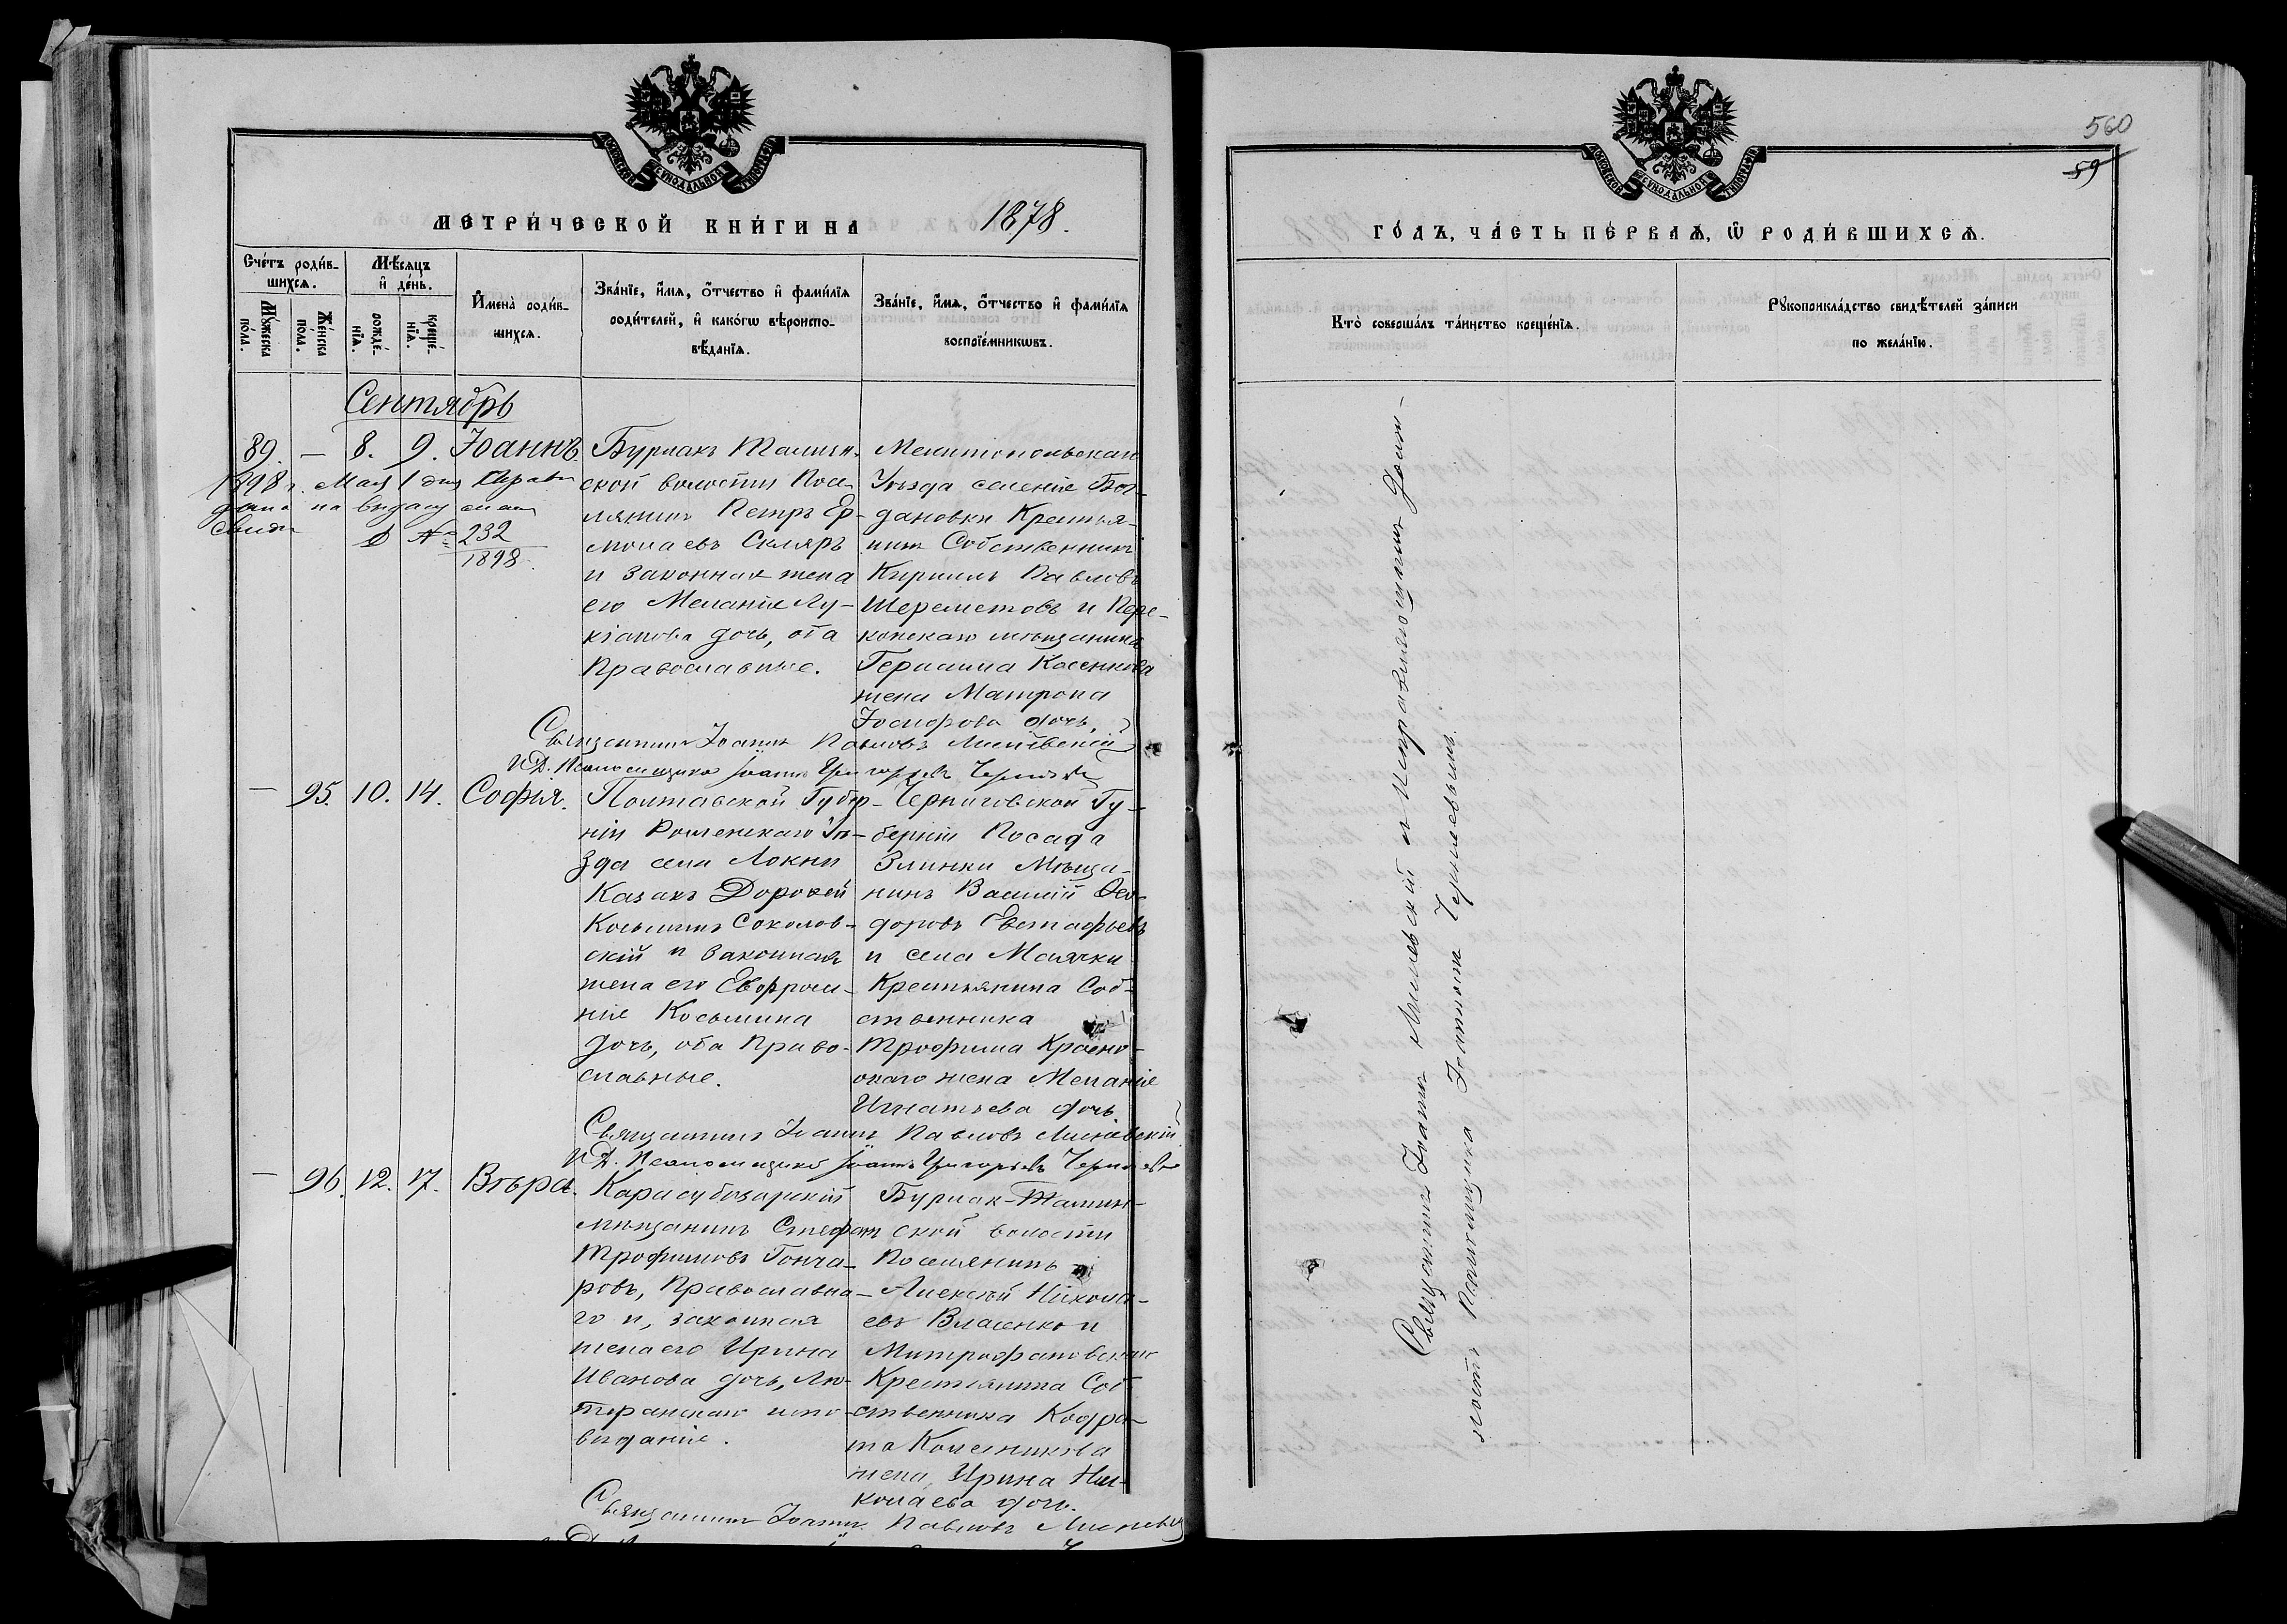 МОСКОВСКОЙ СУНОДАЛЬНОЙ ТИПОГРАФІИ
МЕТРИ́ЧЕСКОЙ КНИ́ГИ НА 1878.
Сче́тъ роди́в-
шихсѧ.
Мꙋ́жеска
по́ла.
Же́нска
по́ла.
Мѣ́сѧцъ
и҆ де́нь.
рожде́-
нїѧ.
креще́-
нїѧ.
И҆мена̀ роди́в-
шихсѧ.
Зва́нїе, и҆́мѧ, ѻ҆́тчество и҆ фами́лїѧ
роди́телей, и҆ како́гѡ вѣроиспо-
вѣ́данїѧ.
Зва́нїе, и҆́мѧ, ѻ҆́тчество и҆ фами́лїѧ
воспрїе́мникѡвъ.
Сентябрь
89. — 8. 9. Іоаннъ.
1898 г. Мая 1 дня
на выдачу
№ 232
1898.
Бурлакъ Тамин-
ской волости Посе-
лянинъ Петръ Ер-
молаевъ Скляръ
и законная жена
его Меланія Лу-
кіанова дочь, оба
Православные.
Мелитопольскаго
Уѣзда селенія Бог-
дановки Крестья-
нинъ Собственникъ
Кириллъ Павловъ
Шереметовъ и Пере-
копскаго мѣщанина
Герасима Касенкова
жена Матрона
Іосифова дочь.
Священникъ Іоаннъ Павловъ Лисневскій
И.Д. Псаломщика Іоаннъ Григорьевъ
— 95. 10. 14. Софья.
Полтавской Губер-
ніи Роменскаго Уѣ-
зда села Локни
Казакъ Дорофей
Косьминъ Соколов-
скій и законная
жена его Евфроси-
нія Косьмина
дочь, оба Право-
славные.
Черниговской Гу-
берніи Посада
Злинки Мѣща-
нинъ Василій Ѳео-
доровъ Евстафьевъ
и села Маячки
Крестьянина Соб-
ственника
Трофима Красно-
окаго жена Меланія
Игнатьева дочь.
Священникъ Іоаннъ Павловъ Лисневскій
И.Д. Псаломщика Іоаннъ Григорьевъ
— 96. 12. 17. Вѣра.
Карасубазарскій
мѣщанинъ Стефанъ
Трофимовъ Гонча-
ровъ, Православна-
го и, законная
жена его Ирина
Иванова дочь, Лю-
теранскаго испо-
вѣданія.
Бурлак-Тамин-
ской волости
Поселянинъ
Алексѣй Никола-
евъ Власенко и
Митрофановскаго
Крестьянина Соб-
ственника Кодра-
та Колесникова
жена, Ирина Ни-
колаева дочь.
Священникъ Іоаннъ Павловъ
560
59
МОСКОВСКОЙ СУНОДАЛЬНОЙ ТИПОГРАФІИ
ГО́ДЪ, ЧА́СТЬ ПЕ́РВАѦ, Ѡ҆ РОДИ́ВШИХСѦ.
Кто̀ соверша́лъ та́инство креще́нїѧ.
Рꙋкоприкла́дство свидѣ́телей за́писи
по жела́нїю.
Священникъ Іоаннъ Лисневскій и Исправляющій Долж-
ность Псаломщика Іоаннъ